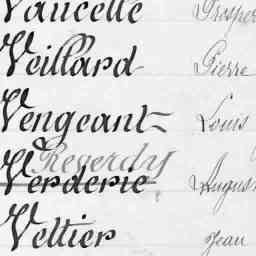 Vaucelle Prosper
Veillard Pierre
Vengeant Louis
Regerdy
Verderie August
Veltier Jean